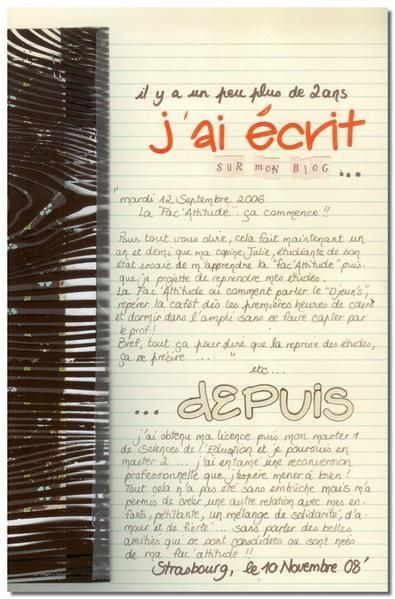 il y a un peu plus de 2 ans
j'ai écrit
SUR MON BLOG ...
"mardi 12 Septembre 2006
La "Fac'Attitude": ça commence !!
Pour tout vous dire, cela fait maintenant un
an et demi que ma copine Julie, étudiante de son
état essaie de m'apprendre la "fac'Attitude" puis-
que je projette de reprendre mes études.
La Fac'Attitude ou comment parler le "Djeun's",
repérer la cafet dès les premières heures de cours
et dormir dans l'amphi sans se faire capter par
le prof!
Bref, tout ça pour dire que la reprise des études,
ça se précise ... "
etc...
... DEPUIS
j'ai obtenu ma licence puis mon master 1
de Sciences de l'Education et je poursuis en
master 2 ... j'ai entamé une reconversion
professionnelle que j'espère mener à bien!
Tout cela n'a pas été sans embûche mais m'a
permis de créer une autre relation avec mes en-
fants, pétillante, un mélange de solidarité, d'a-
mour et de fierté ... sans parler des belles
amitiés qui se sont consolidées ou sont nées
de ma fac'attitude !!
Strasbourg, le 10 Novembre 08'